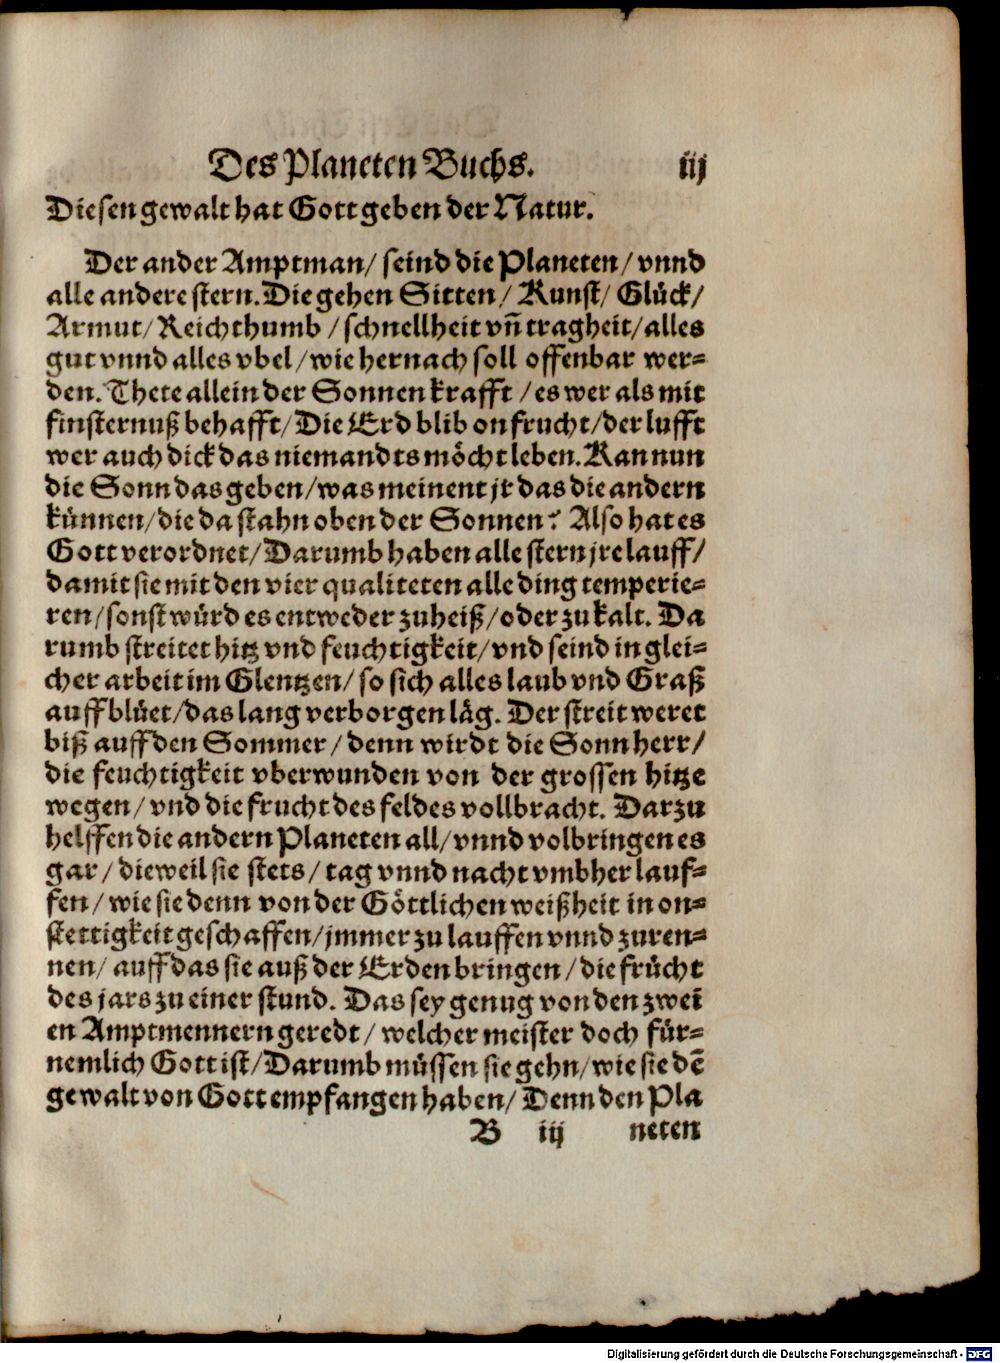 Des Planeten Buchs. iij
Diesen gewalt hat Gott geben der Natur.
Der ander Amptman/ seind die Planeten/ vnnd
alle andere stern. Die gehen Sitten/ Kunst/ Glück/
Armut/ Reichthumb / schnellheit vñ tragheit/ alles
gut vnnd alles vbel / wie hernach soll offenbar wer⸗
den. Thete allein der Sonnen krafft / es wer als mit
finsternuß behafft/ Die Erd blib on frucht/ der lufft
wer auch dick das niemandts möcht leben. Kan nun
die Sonn das geben/ was meinent jr das die andern
künnen/ die da stahn oben der Sonnen? Also hat es
Gott verordnet/ Darumb haben alle stern jre lauff/
damit sie mit den vier qualiteten alle ding temperie⸗
ren/ sonst würd es entweder zu heiß/ oder zu kalt. Da
rumb streitet hitz vnd feuchtigkeit/ vnd seind in glei⸗
cher arbeit im Glentzen/ so sich alles laub vnd Graß
auffblüet/ das lang verborgen läg. Der streit weret
biß auff den Sommer / denn wirdt die Sonn herr/
die feuchtigkeit vberwunden von der grossen hitze
wegen/ vnd die frucht des feldes vollbracht. Darzu
helffen die andern Planeten all/ vnnd volbringen es
gar / dieweil sie stets / tag vnnd nacht vmbher lauf⸗
fen / wie sie denn von der Göttlichen weißheit in on⸗
stettigkeit geschaffen/ jmmer zu lauffen vnnd zu ren⸗
nen/ auff das sie auß der Erden bringen / die frücht
des jars zu einer stund. Das sey genug von den zwei
en Amptmennern geredt / welcher meister doch für⸗
nemlich Gott ist/ Darumb müssen sie gehn/ wie sie dē
gewalt von Gott empfangen haben/ Denn den Pla
B iij neten
Digitalisierung gefördert durch die Deutsche Forschungsgemeinschaft - DFG